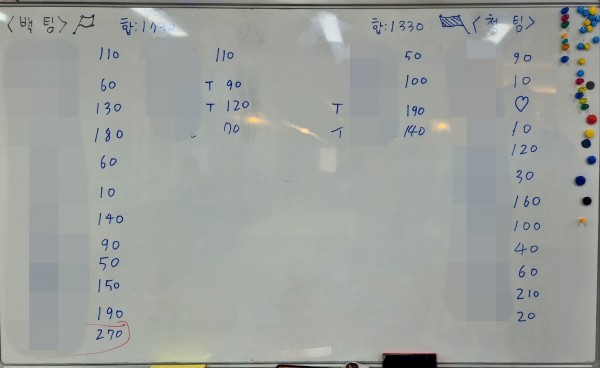 <백 팀>
합:
110
60
130
180
60
10
140
90
50
150
190
270
110
T 90
T 120
70
합:1330
<청 팀>
50
100
T 190
T 140
90
10
♡
10
120
30
160
100
40
60
210
20